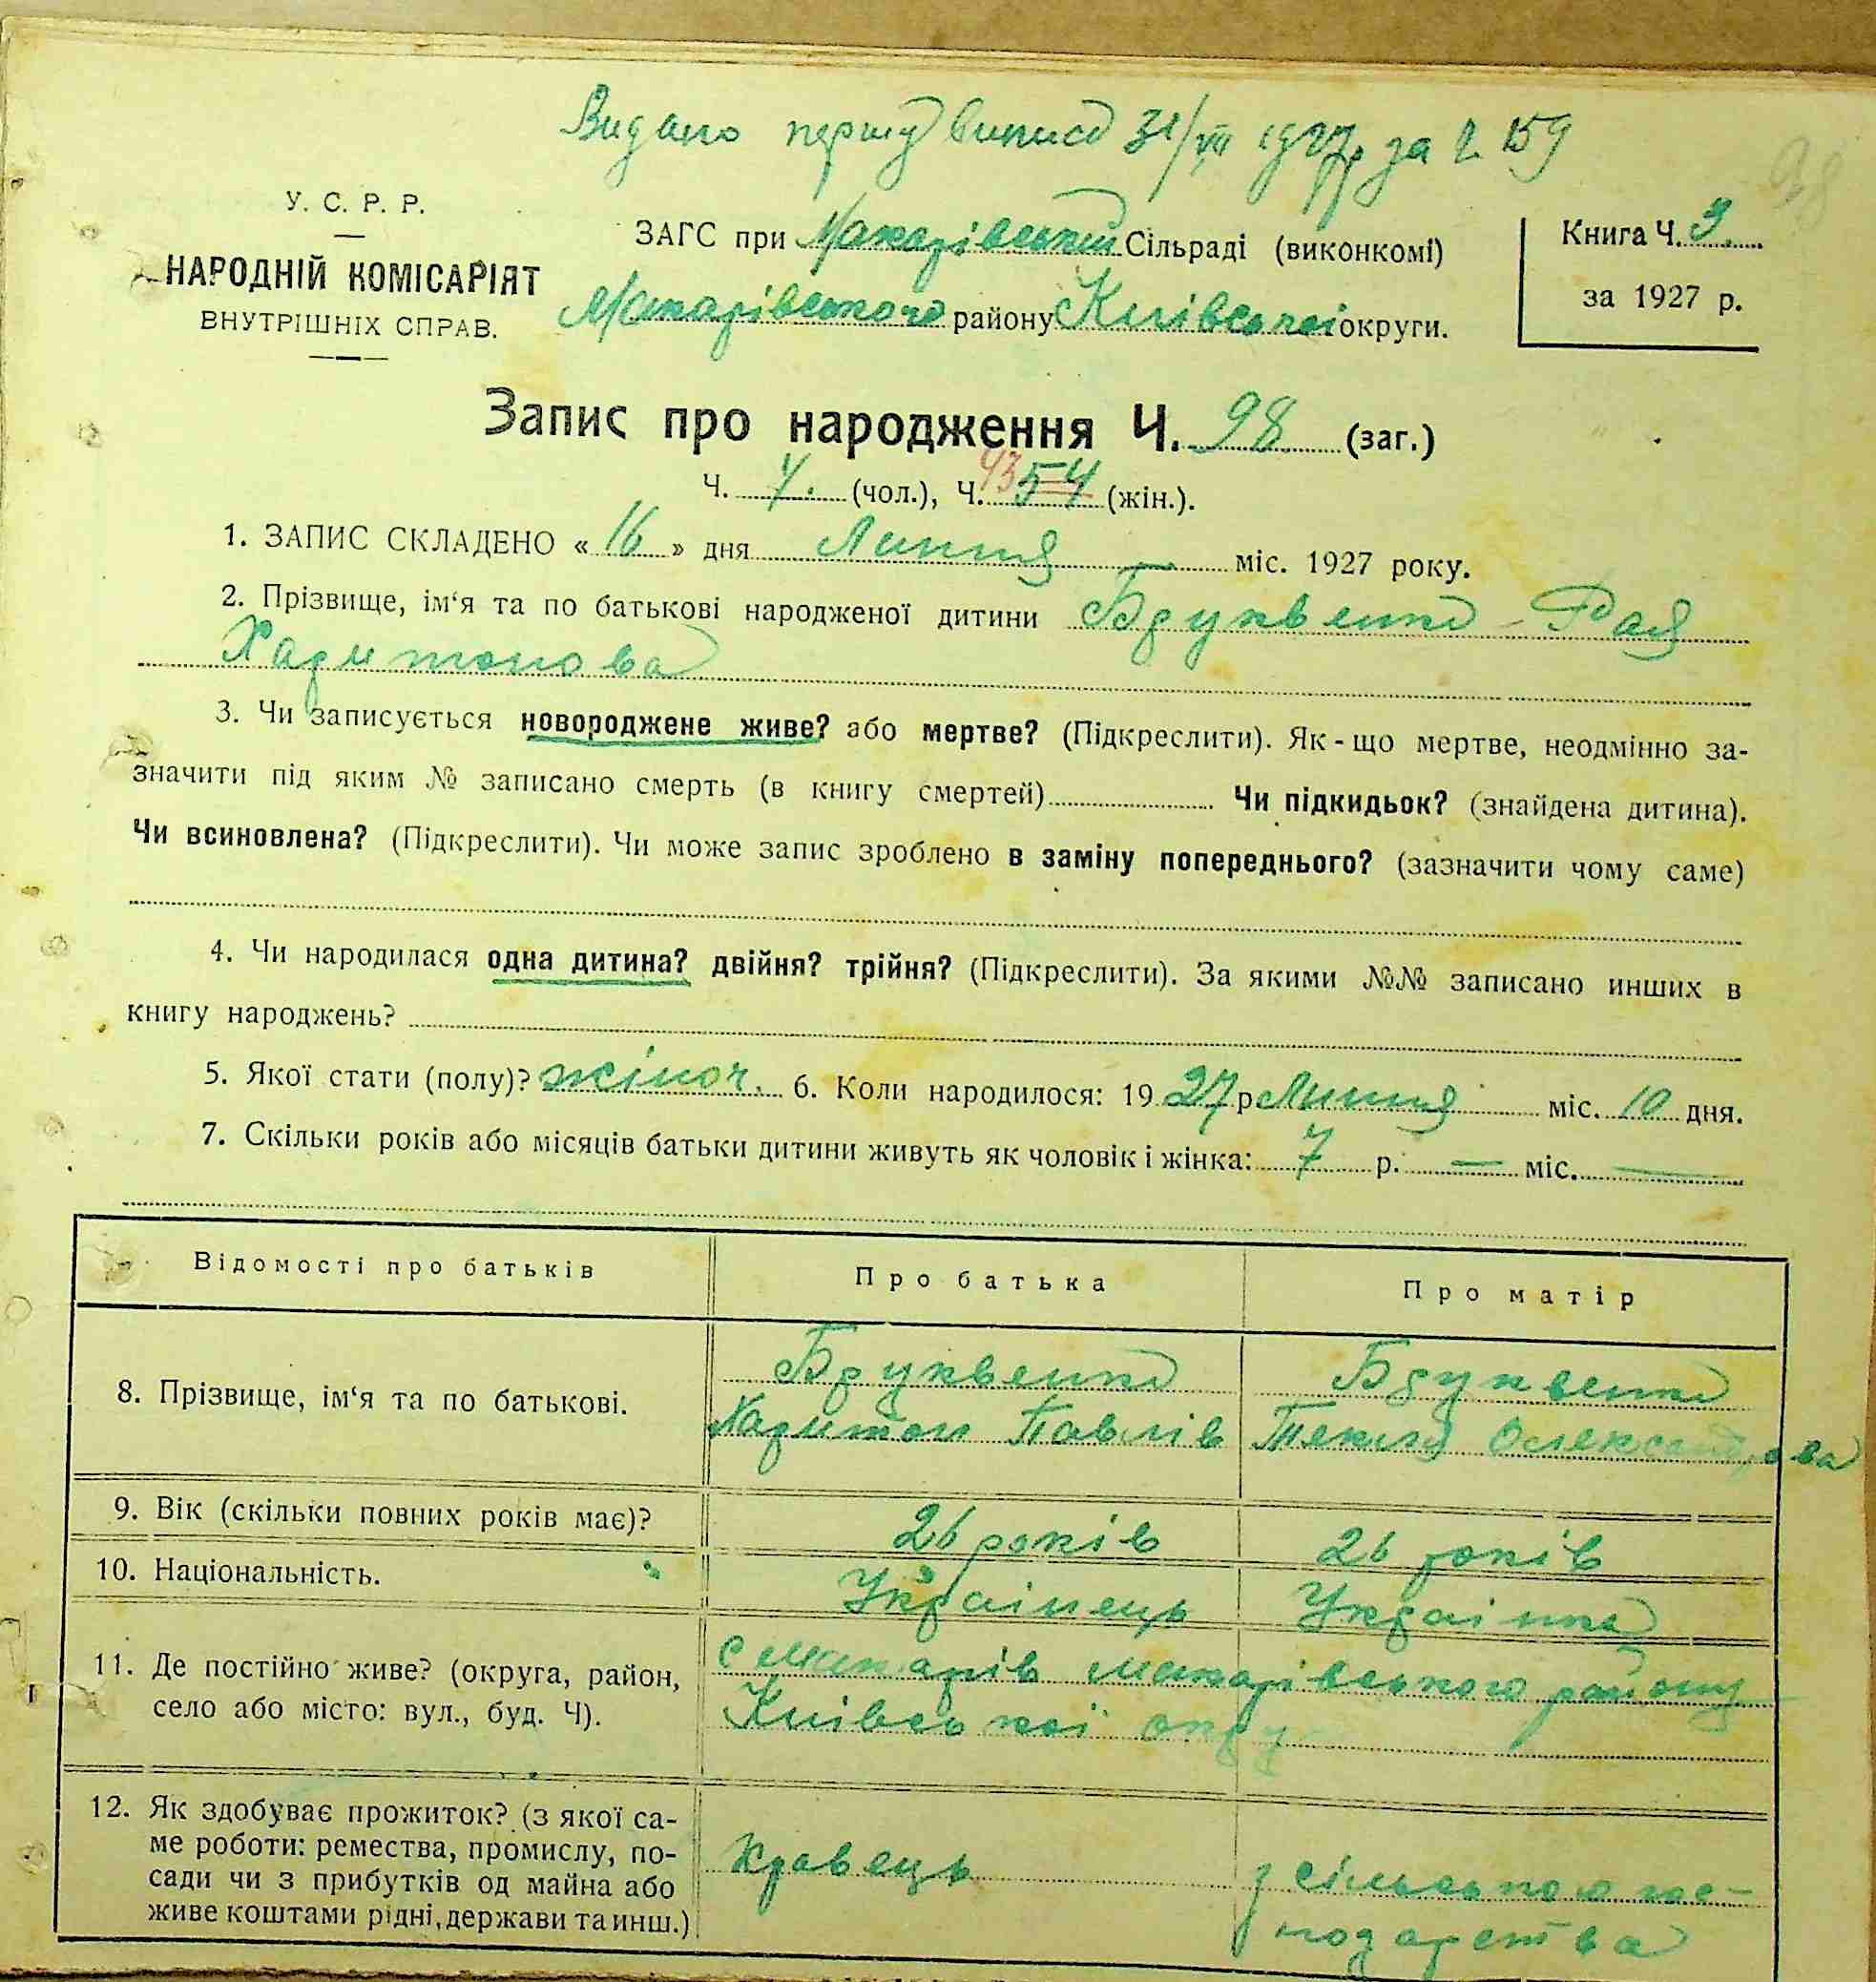 Видано першу виписъ 31/VII 1927р. за ч. 159
У. С. Р. Р.
НАРОДНІЙ КОМІСАРІЯТ
ВНУТРІШНІХ СПРАВ.
ЗАГС при Макарівській Сільраді (виконкомі)
Макарівського району Київської округи.
Книга Ч. 3
за 1927 р.
Запис про народження Ч. 98 (заг.)
Ч. (чол.), Ч. 43 54 (жін.).
1. ЗАПИС СКЛАДЕНО « 16 » дня Липня міс. 1927 року.
2. Прізвище, ім‘я та по батькові народженої дитини Бруквенко - Рая
Харитонова
3. Чи записується новороджене живе? або мертве? (Підкреслити). Як-що мертве, неодмінно за-
значити під яким № записано смерть (в книгу смертей) Чи підкидьок? (знайдена дитина).
Чи всиновлена? (Підкреслити). Чи може запис зроблено в заміну попереднього? (зазначити чому саме)
4. Чи народилася одна дитина? двійня? трійня? (Підкреслити). За якими №№ записано инших в
книгу народжень?
5. Якої стати (полу)? жіноч. 6. Коли народилося: 1927 р Липня міс. 10 дня.
7. Скільки років або місяців батьки дитини живуть як чоловік і жінка: 7 р. — міс. —
Відомості про батьків Про батька Про матір
8. Прізвище, ім‘я та по батькові.
Бруквенко
Харитон Павлів
Бруквенко
Текля Олександрова
9. Вік (скільки повних років має)? 26 років 26 років
10. Національність. Українець Українка
11. Де постійно живе? (округа, район,
село або місто: вул., буд. Ч).
с Макарів Макарівського району
Київської окру
12. Як здобуває прожиток? (з якої са-
ме роботи: ремества, промислу, по-
сади чи з прибутків од майна або
живе коштами рідні, держави та инш.)
Кравець
з сільського гос-
подарства